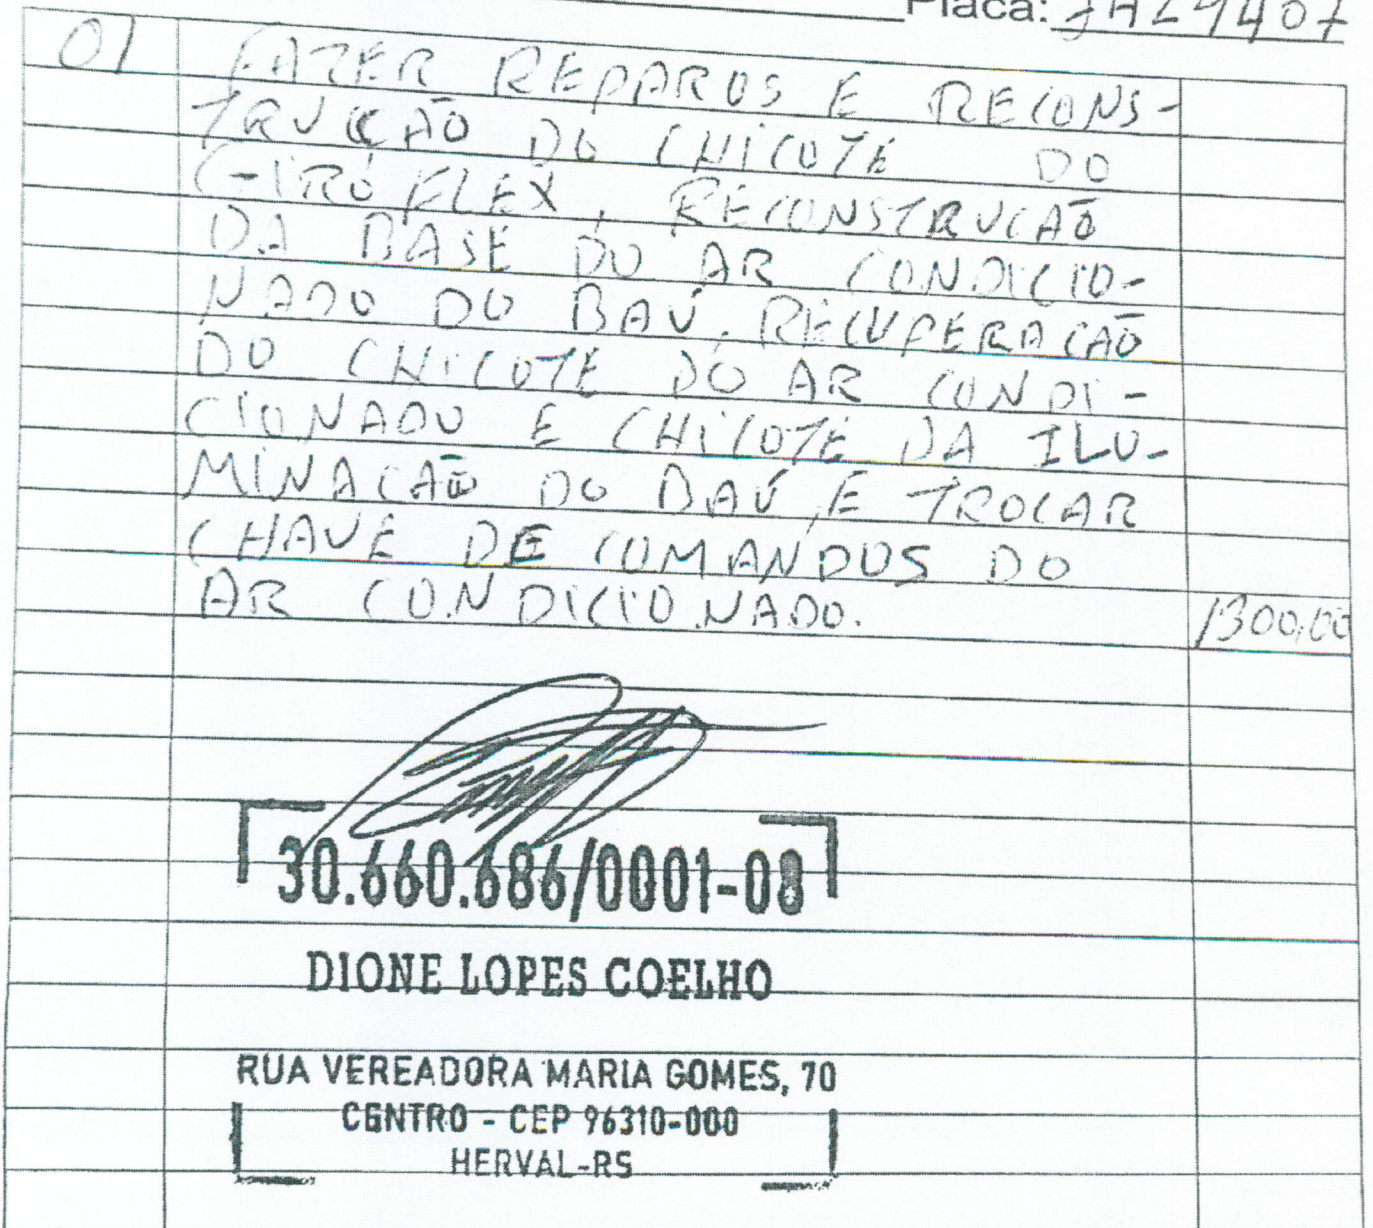 Placa:
01 FAZER REPAROS E RECONS-
TRUCÃO DO CHICOTE DO
GIROFLEX, RECONSTRUCÃO
DA BASE DO AR CONDICIO-
NADO DO BAÚ, RECUPERACÃO
DO CHICOTE DO AR CONDI-
CIONADO E CHICOTE DA ILU-
MINACÃO DO BAÚ, E TROCAR
CHAVE DE COMANDOS DO
AR CONDICIONADO. 1300,00
30.660.686/0001-08
DIONE LOPES COELHO
RUA VEREADORA MARIA GOMES, 70
CENTRO - CEP 96310-000
HERVAL-RS